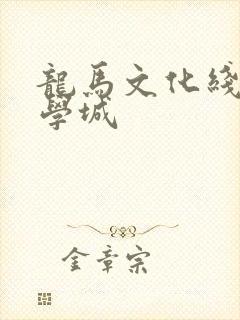 龍馬文化綫
學城
金章宗